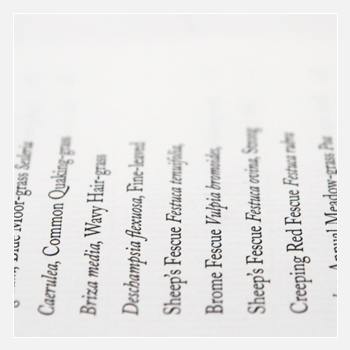 Blue Moor-grass Sesleria
Caerulea, Common Quaking-grass
Briza media, Wavy Hair-grass
Deschampsia flexuosa, Fine-leaved
Sheep's Fescue Festuca tenuifolia,
Brome Fescue Vulpia bromoides,
Sheep's Fescue Festuca ovina, Strong
Creeping Red Fescue Festuca rubra
Annual Meadow-grass Poa